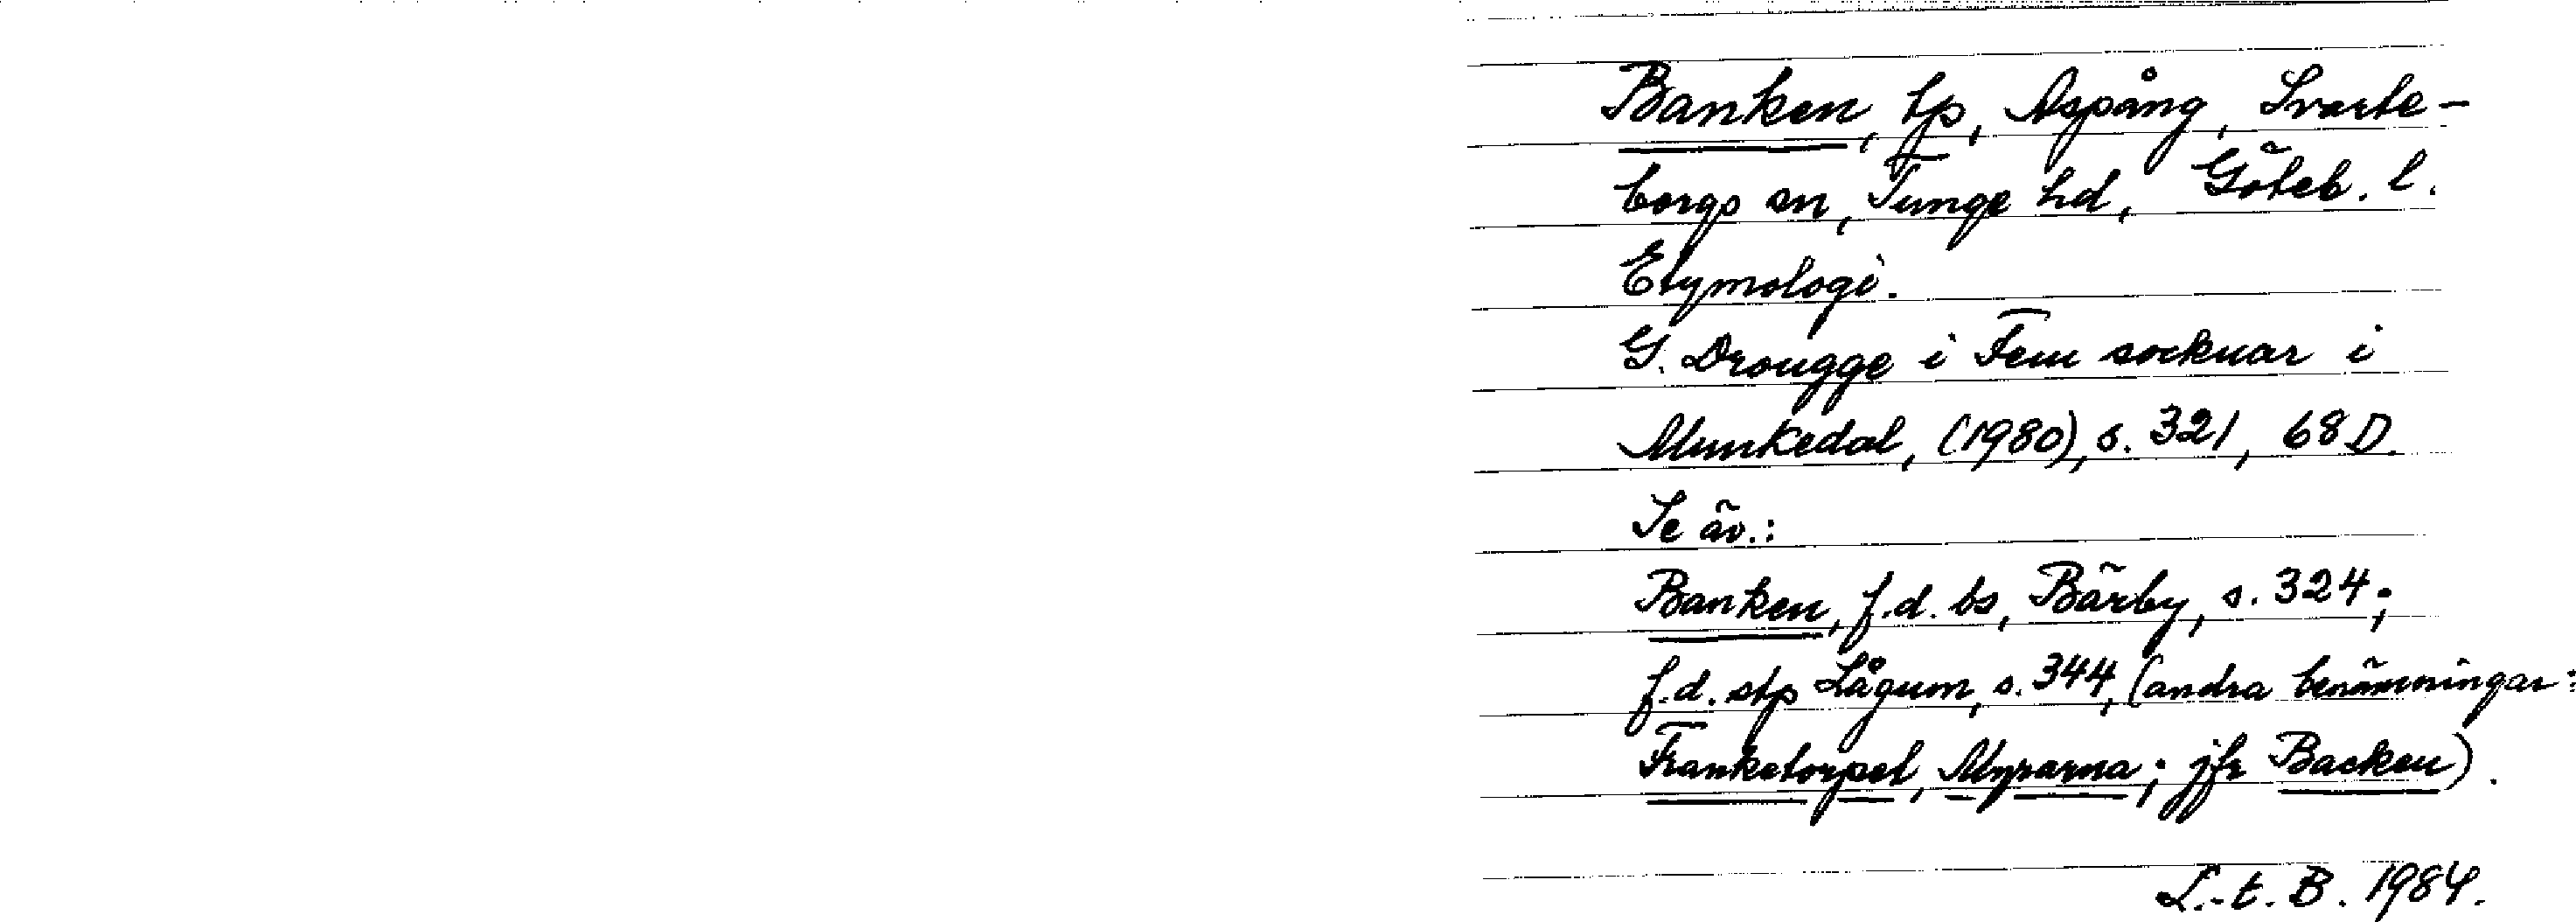 Banken, tp, Aspång, Svarte-
borgs sn, Tunge hd, Göteb. l.
Etymologi.
G. Drougge i Fem socknar i
Munkedal, (1980), s. 321, 68 D.
Se äv.:
Banken, f.d. bs, Bärby, s. 324;
f.d. stp Lågum, s. 344, (andra benämningar:
Franketorpet, Myrarna; jfr Backen).
L.-t. B. 1984.